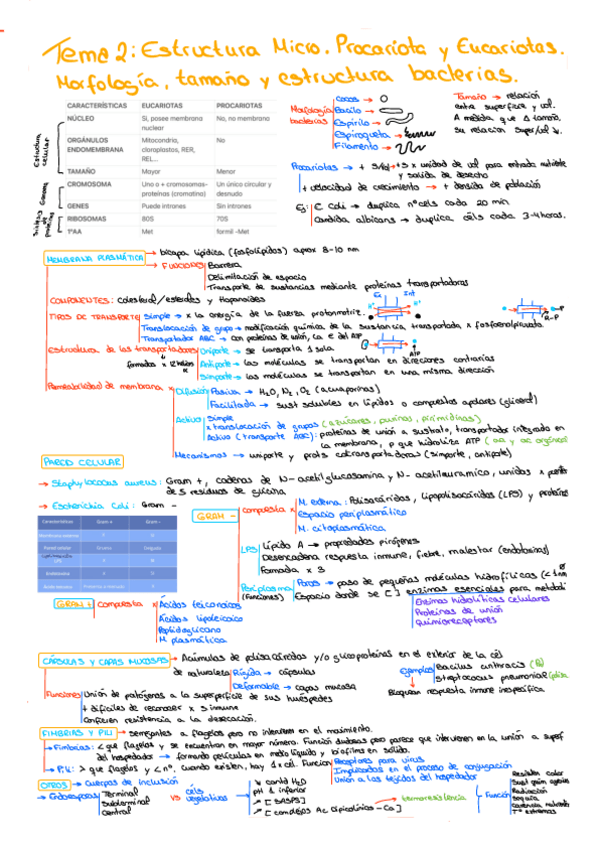 Tema 2: Estructura Micro. Procariota y Eucariotas.
Morfología, tamaño y estructura bacterias.
CARACTERÍSTICAS EUCARIOTAS PROCARIOTAS
NÚCLEO Si, posee membrana nuclear No, no membrana
ORGÁNULOS ENDOMEMBRANA Mitocondria, cloroplastos, RER, REL... No
TAMAÑO Mayor Menor
CROMOSOMA Uno o + cromosomas- proteínas (cromatina) Un único circular y desnudo
GENES Puede intrones Sin intrones
RIBOSOMAS 80S 70S
1ºAA Met formil -Met
Estructura celular
Genoma
Síntesis de proteínas
Morfología bacterias
Cocos →
Bacilo →
Espirilo →
Espiroqueta →
Filamento →
Tamaño → relación
entre superficie y vol.
A medida que ↑ tamaño,
su relación super/vol ↓.
Procariotas → + s/vol → + s x unidad de vol para entrada nutriente
y salida de desecho
+ velocidad de crecimiento → + densidad de población
Ej: E. Coli → duplica nº cels cada 20 min
Candida albicans → duplica cels cada 3-4 horas.
MEMBRANA PLASMÁTICA → bicapa lipídica (fosfolípidos) aprox 8-10 nm
→ FUNCIONES Barrera
Delimitación de espacio
Transporte de sustancias mediante proteínas transportadoras
COMPONENTES: Colesterol/esteroles y Hopanoides
Ex Int
TIPOS DE TRANSPORTE Simple → x la energía de la fuerza protonmotriz.
Translocación de grupo → modificación química de la sustancia transportada x fosfoenolpiruvato.
R-P
Transportador ABC → con proteínas de unión, la E del ATP
ATP
Estructura de los transportadores Uniporte → se transporta 1 sola
formados x 12 hélices Antiporte → las moléculas se transportan en direcciones contrarias
Simporte → las moléculas se transportan en una misma dirección
Permeabilidad de membrana x Difusión Pasiva → H₂O, N₂, O₂ (acuaporinas)
Facilitada → sust solubles en lípidos o compuestos apolares (glicerol)
Activo Simple
x translocación de grupos (azúcares, purinas, pirimidinas)
Activo (transporte ABC): proteínas de unión a sustrato, transportador integrado en
la membrana, p que hidroliza ATP (aa y ac orgánicos)
Mecanismos → uniporte y prots cotransportadoras (simporte, antiporte)
PARED CELULAR
→ Staphylococcus aureus: Gram +, cadenas de N-acetilglucosamina y N-acetilmuramico, unidos x
de 5 residuos de glicina
→ Escherichia Coli: Gram -
Características Gram + Gram -
GRAM - compuesta x M. externa: Polisacáridos, lipopolisacáridos (LPS) y proteínas
Espacio periplasmático
M. citoplasmática
LPS Lípido A → propiedades pirógenas
Desencadena respuesta inmune, fiebre, malestar (endotoxinas)
Formada x 3
Periplasma (Funciones) Poros → paso de pequeñas moléculas hidrofílicas
Espacio donde se [ ] enzimas esenciales para
Enzimas hidrolíticas celulares
Proteínas de unión
Quimiorreceptores
GRAM + compuesta x Ácidos teicoicos
Ácidos lipoteicoico
Peptidoglicano
M. plasmática
CÁPSULAS Y CAPAS MUCOSAS → Acúmulos de polisacáridos y/o glucoproteínas en el exterior de la cel
de naturaleza Rígida → cápsulas
Deformable → capas mucosa
Ejemplos Bacillus anthracis
Streptococcus pneumoniae
Bloquean respuesta inmune inespecífica
Funciones Unión de patógenos a la superficie de sus huéspedes
+ difíciles de reconocer x s inmune
Confieren resistencia a la desecación.
FIMBRIAS Y PILI → semejantes a flagelos pero no intervienen en el movimiento.
→ Fimbrias: < que flagelos y se encuentran en mayor número. Función dudosa pero parece que intervienen en la unión a superf
del hospedador → formando películas en medio líquido y biofilms en sólido.
→ Pili: > que flagelos y < nº. Cuando existen, hay 1 x cel. Función Receptores para virus
Implicados en el proceso de conjugación
Unión a los tejidos del hospedador
OTROS → Cuerpos de inclusión
→ Endoesporas Terminal
Subterminal
Central
VS cels vegetativas
↓ cantid H₂O
pH 1 inferior
↗ [SASPS]
↗ [complejos Ac. dipicolínico - Ca]
termoresistencia
→ Función
Resisten calor
Radiación
Sequía
Carencia nutrientes
Tª extremas